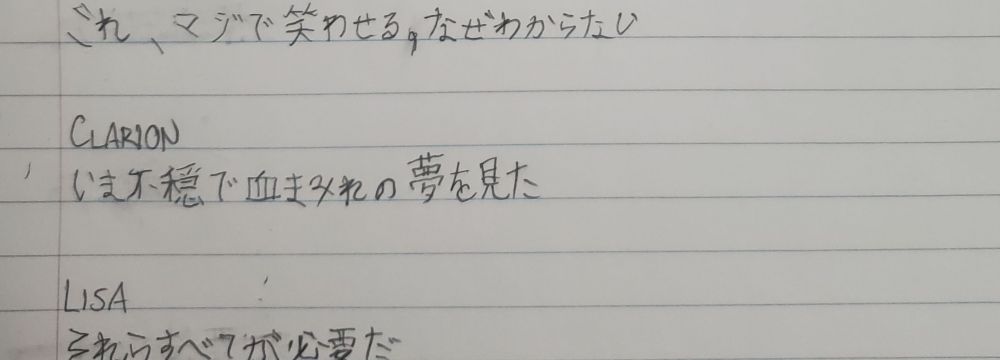 これ、マジで笑わせる,なぜわからない
CLARION
いま不穏で血まみれの夢を見た
LISA
それらすべてが必要だ